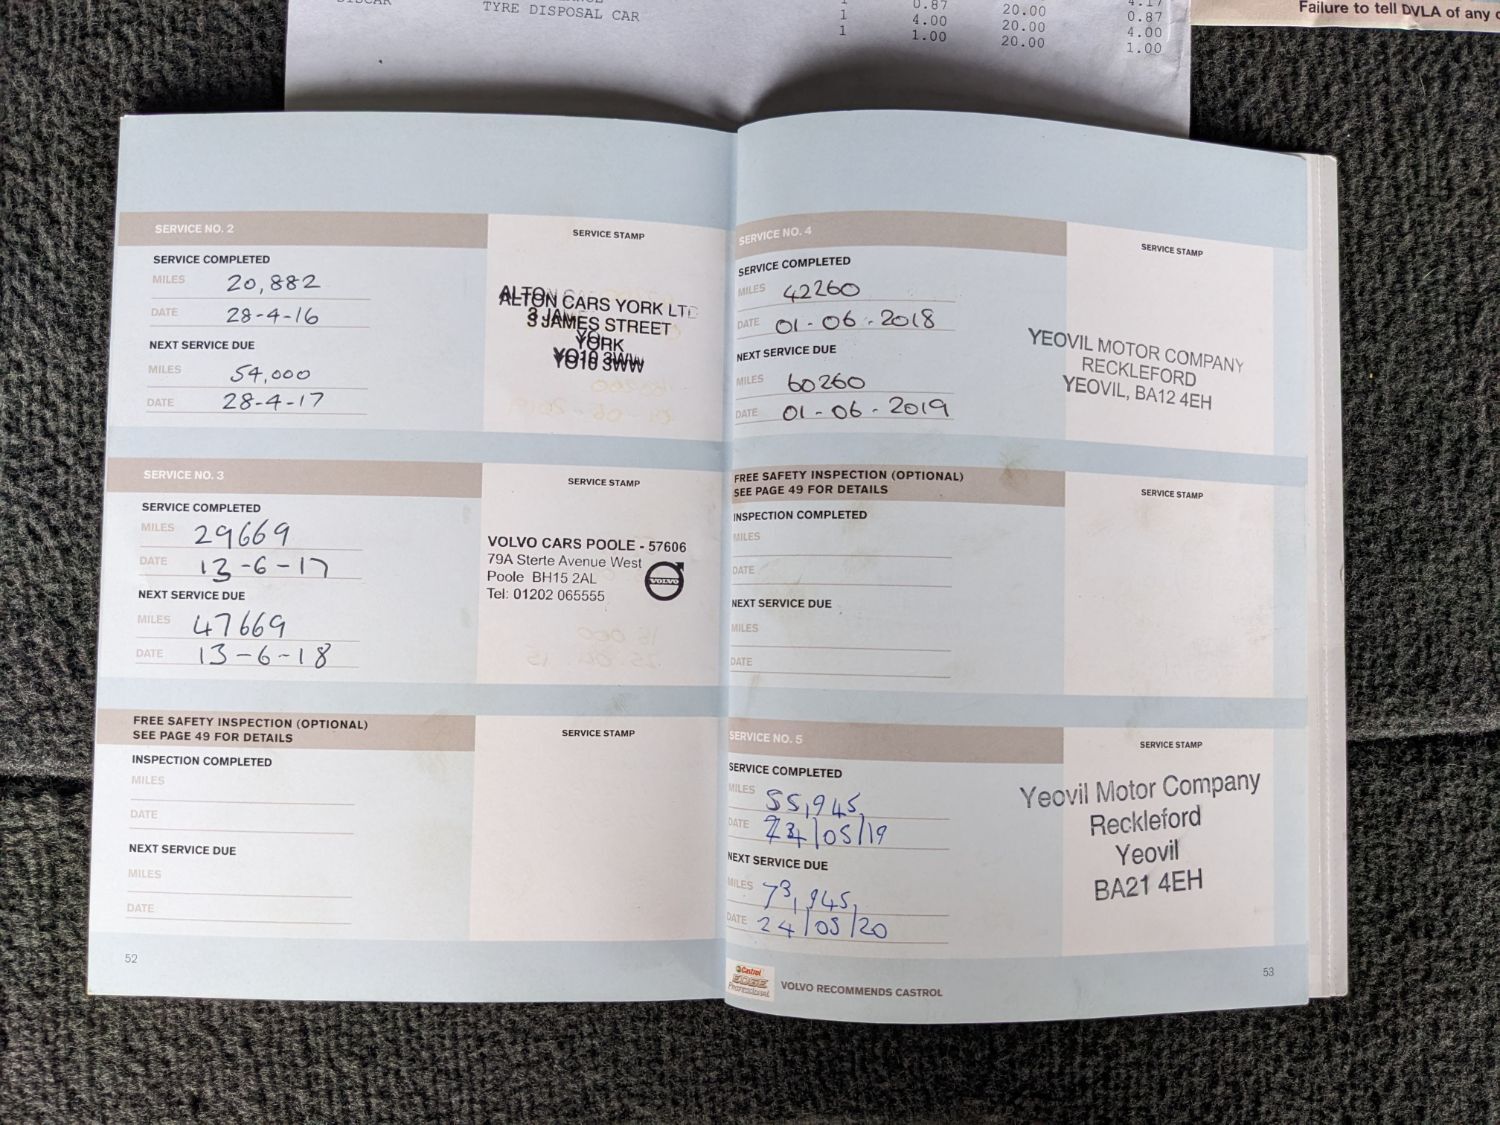 TYRE DISPOSAL CAR
1 0.87 20.00 4.17
1 4.00 20.00 0.87
1 1.00 20.00 4.00
1.00
Failure to tell DVLA of any
SERVICE NO. 2
SERVICE STAMP
SERVICE COMPLETED
MILES 20,882
DATE 28-4-16
NEXT SERVICE DUE
MILES 54,000
DATE 28-4-17
ALTON CARS YORK LTD
3 JAMES STREET
YORK
YO10 3WW
SERVICE NO. 3
SERVICE STAMP
SERVICE COMPLETED
MILES 29669
DATE 13-6-17
NEXT SERVICE DUE
MILES 47669
DATE 13-6-18
VOLVO CARS POOLE - 57606
79A Sterte Avenue West
Poole BH15 2AL
Tel: 01202 065555
VOLVO
FREE SAFETY INSPECTION (OPTIONAL)
SEE PAGE 49 FOR DETAILS
SERVICE STAMP
INSPECTION COMPLETED
MILES
DATE
NEXT SERVICE DUE
MILES
DATE
52
SERVICE NO. 4
SERVICE STAMP
SERVICE COMPLETED
MILES 42260
DATE 01-06-2018
NEXT SERVICE DUE
MILES 60260
DATE 01-06-2019
YEOVIL MOTOR COMPANY
RECKLEFORD
YEOVIL, BA12 4EH
FREE SAFETY INSPECTION (OPTIONAL)
SEE PAGE 49 FOR DETAILS
SERVICE STAMP
INSPECTION COMPLETED
MILES
DATE
NEXT SERVICE DUE
MILES
DATE
SERVICE NO. 5
SERVICE STAMP
SERVICE COMPLETED
MILES 55,945
DATE 24/05/19
NEXT SERVICE DUE
MILES 73,945
DATE 24/05/20
Yeovil Motor Company
Reckleford
Yeovil
BA21 4EH
Castrol
EDGE
Professional
VOLVO RECOMMENDS CASTROL
53